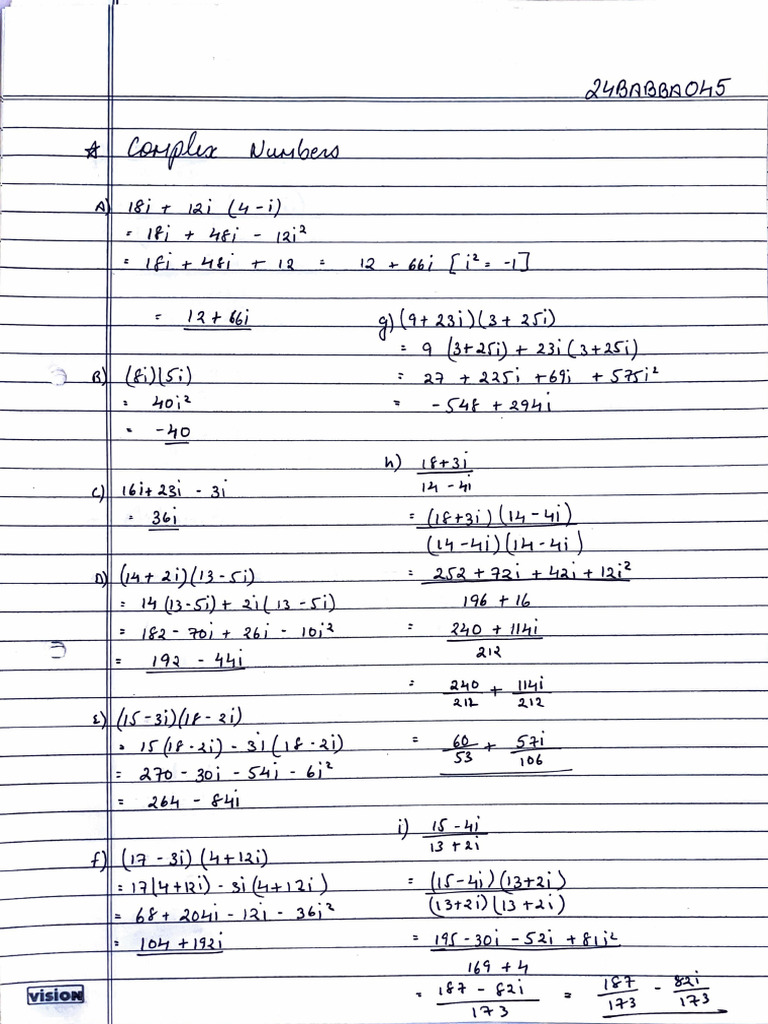 24BABBA045
☆ Complex Numbers
A) 18i + 12i (4-i)
= 18i + 48i - 12i²
= 18i + 48i + 12 = 12 + 66i [i² = -1]
= 12+66i
B) (8i)(5i)
= 40i²
= -40
C) 16i+23i - 3i
= 36i
D) (14+2i)(13-5i)
= 14(13-5i)+2i(13-5i)
= 182-70i+26i-10i²
= 192 - 44i
E) (15-3i)(18-2i)
= 15(18-2i)-3i(18-2i)
= 270-30i-54i-6i²
= 264-84i
f) (17-3i)(4+12i)
= 17(4+12i)-3i(4+12i)
= 68+204i-12i-36i²
= 104+192i
g) (9+23i)(3+25i)
= 9 (3+25i)+23i(3+25i)
= 27 +225i +69i +575i²
= -548+294i
h) 18+3i
14-4i
= (18+3i)(14-4i)
(14-4i)(14-4i)
= 252+72i+42i+12i²
196+16
= 240+114i
212
= 240/212 + 114i/212
= 60/53 + 57i/106
i) 15-4i
13+2i
= (15-4i)(13+2i)
(13+2i)(13+2i)
= 195-30i-52i+8i²
169+4
= 187-82i/173 = 187/173 - 82i/173
vision